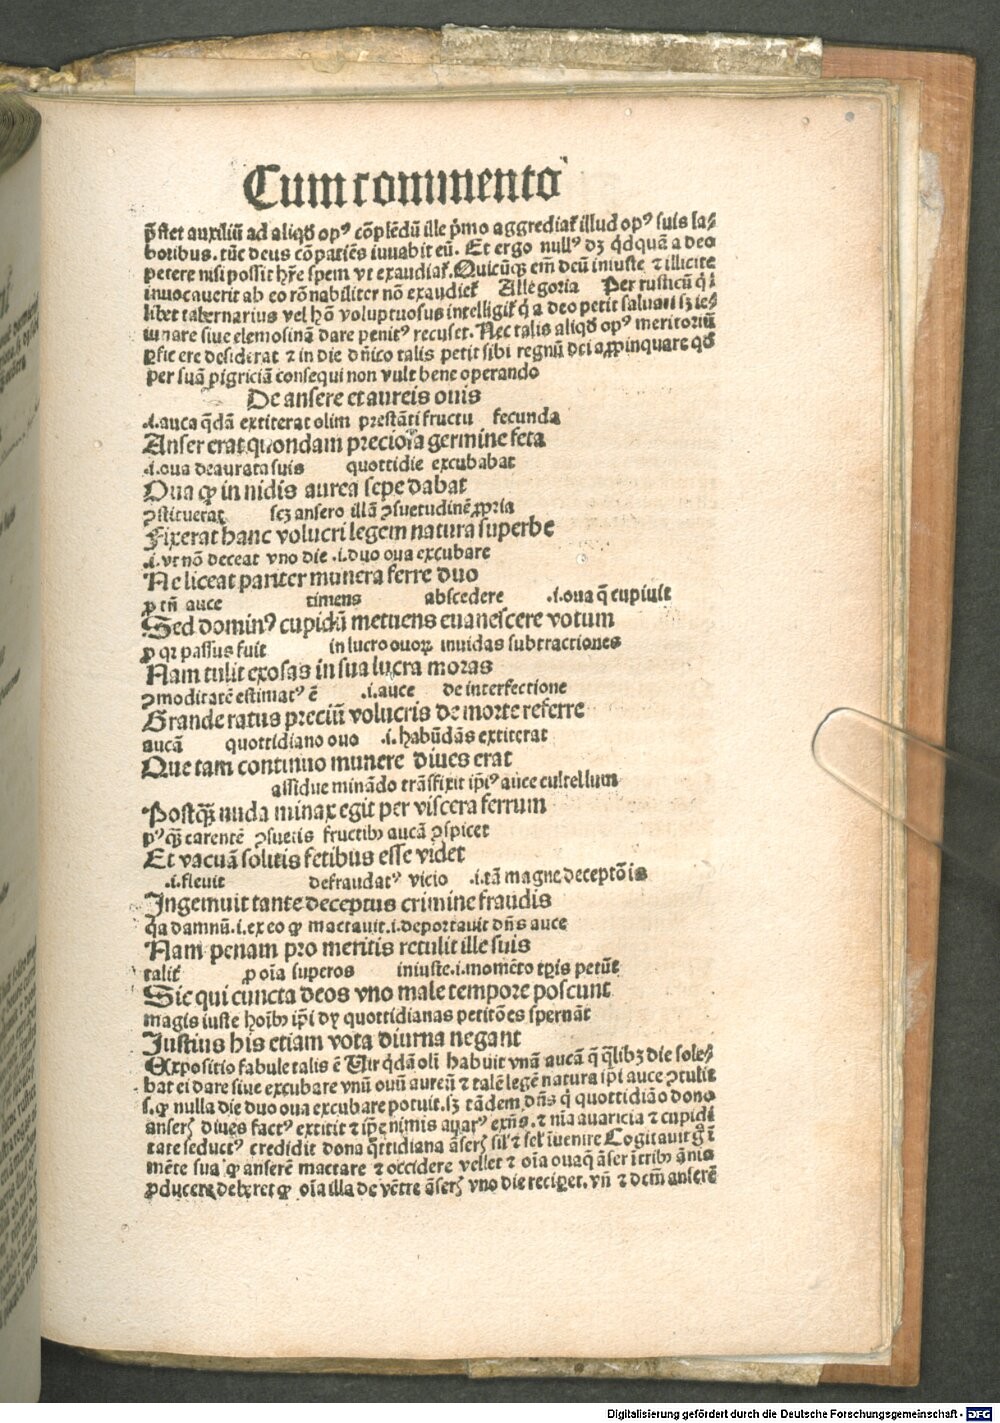 Cum commento
p̄stet auxiliū ad aliqḋ op⁹ cōplēdū ille p̄mo aggrediat̄ illud op⁹ suis la⸗
boribus. tūc deus cōpatiēs iuuabit eū. Et ergo null⁹ dꝫ q̇dquā a deo
petere nisi possit hr̄e spem vt exaudiat̄. Quicūqꝫ em̄ deū iniuste ⁊ illicite
inuocauerit ab eo rōnabiliter nō exaudiet̄ Allegoria Per rusticū q̇⸗
libet tabernarius vel hō voluptuosus intelligit̄ q̇ a deo petit saluari sꝫ ie⸗
iunare siue elemosinā dare penit⁹ recuset. Nec talis aliqḋ op⁹ meritoriū
ꝑficere desiderat ⁊ in die dn̄ico talis petit sibi regnū dei appropinquare qḋ
per suā pigriciā consequi non vult bene operando
De ansere et aureis ouis
.i. auca q̄dā extiterat olim prestāti fructu fecunda
Anser erat quondam preciosa germine feta
.i. oua deaurata suis quottidie excubabat
Oua qꝫ in nidis aurea sepe dabat
ꝯstituerat scꝫ ansero illā ꝯsuetudinē ꝓpria
Fixerat hanc volucri legem natura superbe
.i. vt nō deceat vno die .i. duo oua excubare
Ne liceat pariter munera ferre duo
ꝓ tn̄ auce timens abscedere .i. oua q̄ cupiuit
Sed domin⁹ cupidū metuens euanescere votum
ꝓ qꝛ passus fuit in lucro ouoꝝ inuidas subtractiones
Nam tulit exosas in sua lucra moras
ꝯmoditatē estimat⁹ ē .i. auce de interfectione
Grande ratus preciū volucris de morte referre
aucā quottidiano ouo .i. habūdās extiterat
Que tam continuo munere diues erat
assidue minādo trāsfixit ip̄i⁹ auce cultellum
Postqꝫ̄ nuda minax egit per viscera ferrum
p⁹qꝫ̄ carentē ꝯsuetis fructibꝫ aucā ꝯspicet
Et vacuā solitis fetibus esse videt
.i. fleuit defraudat⁹ vicio .i. tā magne deceptōis
Ingemuit tante deceptus crimine fraudis
q̇a damnū .i. ex eo qꝫ mactauit .i. deportauit dn̄s auce
Nam penam pro meritis retulit ille suis
talit̄ ꝓ oīa superos iniuste .i. momēto tꝑis petūt
Sic qui cuncta deos vno male tempore poscunt
magis iuste hoībꝫ ip̄i dy quottidianas petitōes spernāt
Iustius his etiam vota diurna negant
Expositio fabule talis ē Vir q̇dā oli habuit vnā aucā q̄ q̄libꝫ die sole⸗
bat ei dare siue excubare vnū ouū aureū ⁊ talē legē natura ip̄i auce ꝯtulit
s. qꝫ nulla die duo oua excubare potuit. sꝫ tādem dn̄s q̇ quottidiāo dono
anseris diues fact⁹ extitit ⁊ ip̄e nimis auar⁹ exn̄s. ⁊ nīa auaricia ⁊ cupidi
tate seduct⁹ credidit dona q̄ttidiana āseris sil̄ ⁊ sel̄ īuenire Cogitauit g̊ ī
mēte sua qꝫ anserē mactare ⁊ occidere vellet ⁊ oīa oua q̄ āser ītribꝫ ānis
ꝓducere deberet qꝫ oīa illa de vētre āseris vno die reciꝑet. vn̄ ⁊ dem̄ anserē
Digitalisierung gefördert durch die Deutsche Forschungsgemeinschaft - DFG